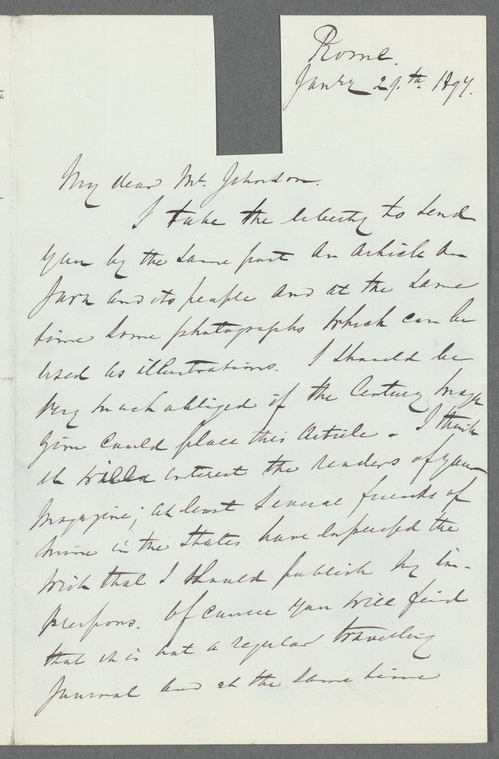 Rome.
Janry 29th 1897.
My dear Mr. Johnson.
I take the liberty to send
you by the same post an article on
Java and its people and at the same
time some photographs which can be
used as illustrations. I should be
very much obliged if the Century Maga
zine could place this article. I think
it would interest the readers of your
Magazine; at least several friends of
mine in the States have expressed the
wish that I should publish my im-
pressions. Of course you will find
that it is not a regular travelling
journal and at the same time